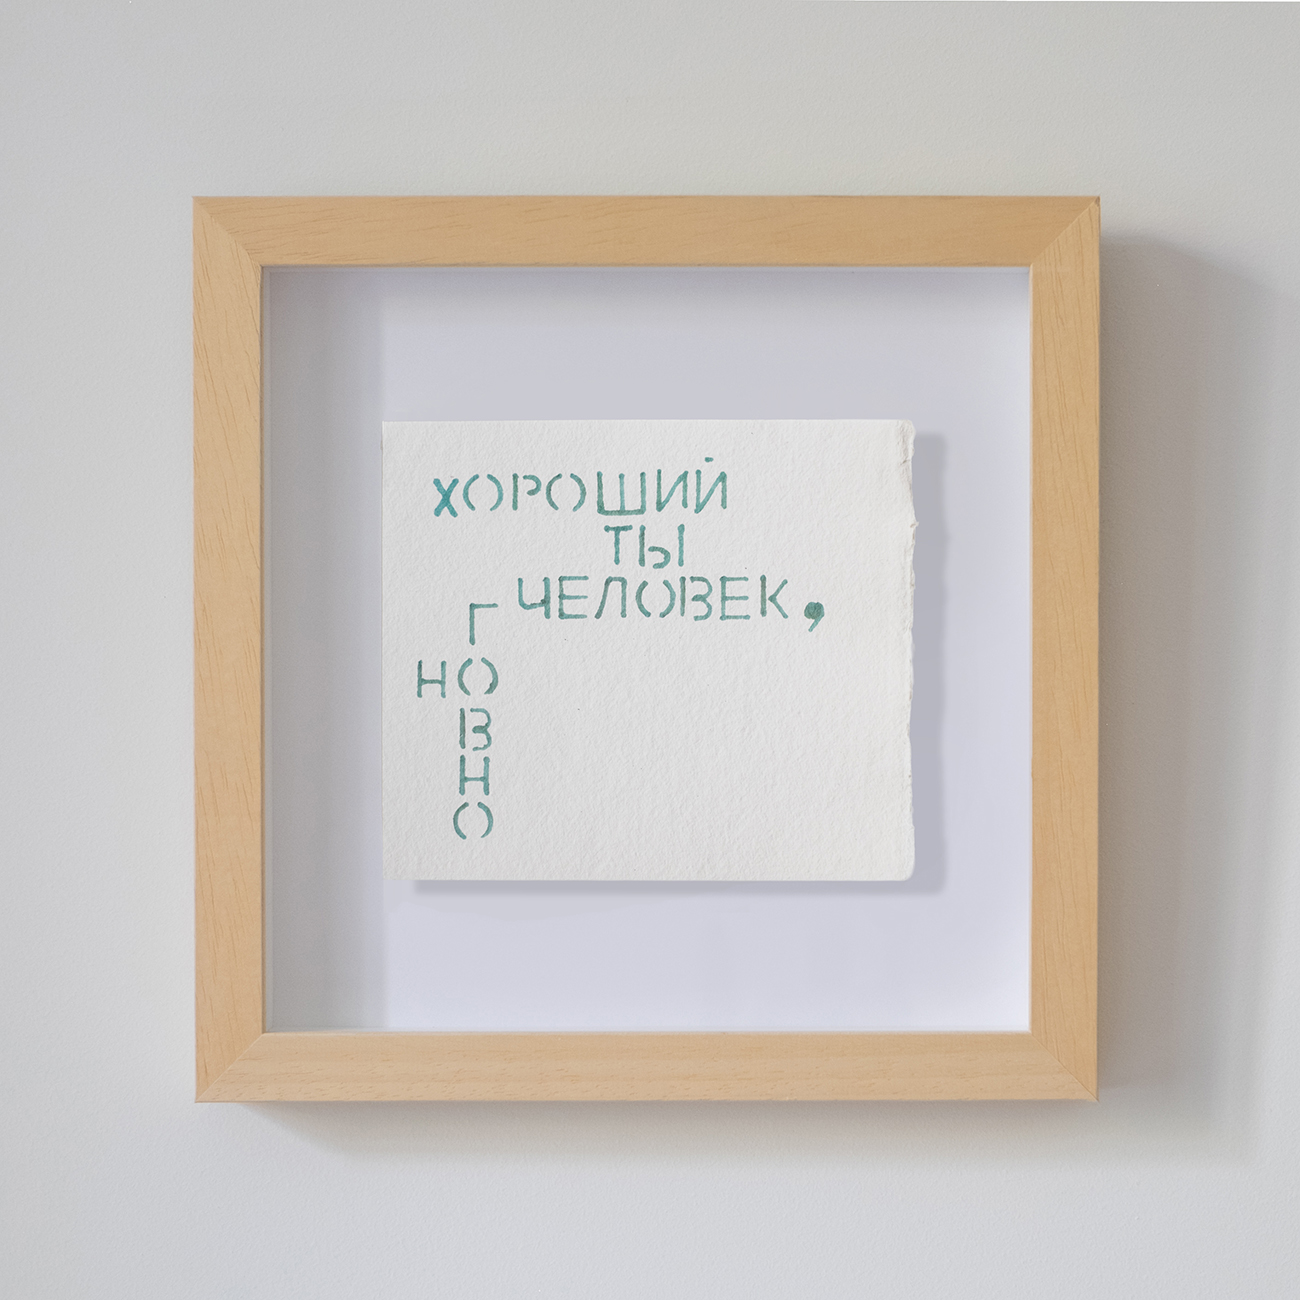 ХОРОШИЙ
ТЫ
ЧЕЛОВЕК,
НО
ГОВНО